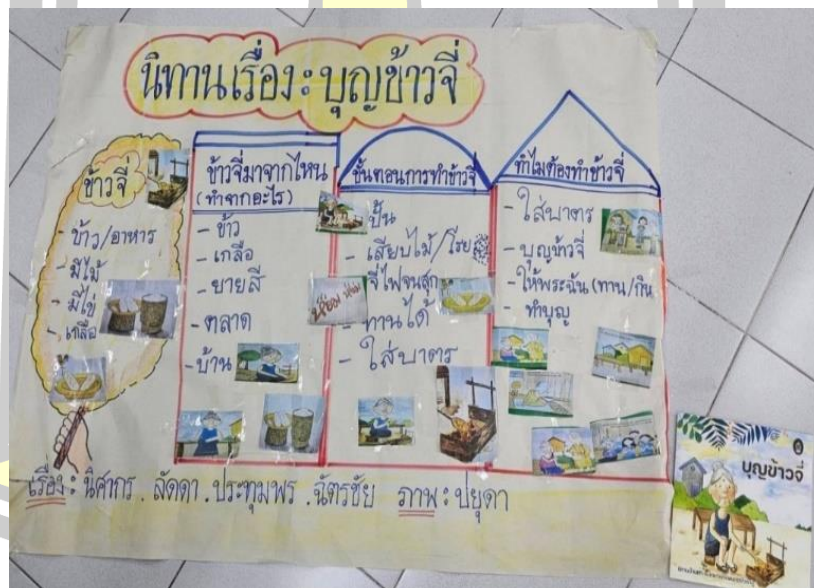 นิทานเรื่อง: บุญข้าวจี่
ข้าวจี่
- ข้าว/อาหาร
- มีไม้
- มีไข่
- เกลือ
ข้าวจี่มาจากไหน
(ทำจากอะไร)
- ข้าว
- เกลือ
- ยายสี
- ตลาด
- บ้าน
ขั้นตอนการทำข้าวจี่
ปั้น
- เสียบไม้/โรย
จี่ไฟจนสุก
- ทานได้
- ใส่บาตร
ทำไมต้องทำข้าวจี่
- ใส่บาตร
- บุญข้าวจี่
- ให้พระฉัน (ทาน/กิน
- ทำบุญ
เรื่อง: นิศากร . ลัดดา . ประทุมพร . ฉัตรชัย ภาพ: ปยุดา
บุญข้าวจี่